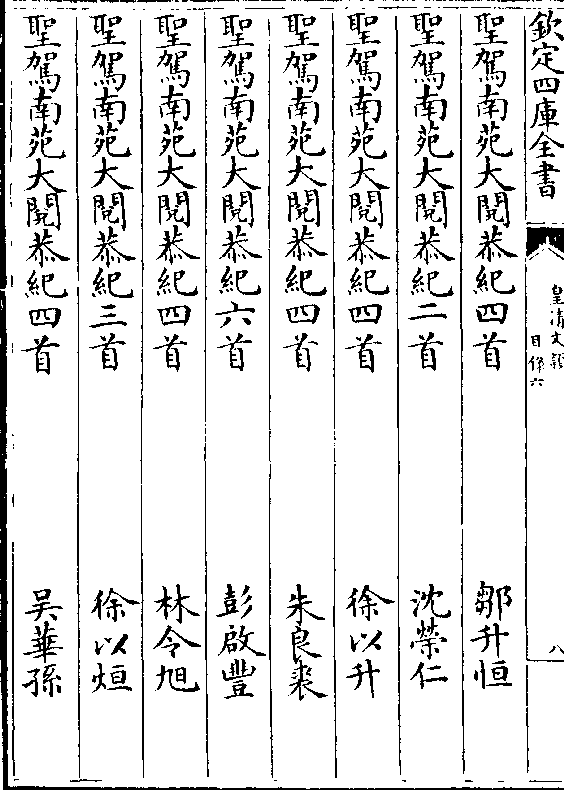 欽定四庫全書
皇清文穎
目錄六
八
聖駕南苑大閱恭紀四首 鄒升恒
聖駕南苑大閱恭紀二首 沈榮仁
聖駕南苑大閱恭紀四首 徐以升
聖駕南苑大閱恭紀四首 朱良裘
聖駕南苑大閱恭紀六首 彭啟豐
聖駕南苑大閱恭紀四首 林令旭
聖駕南苑大閱恭紀三首 徐以烜
聖駕南苑大閱恭紀四首 吴華孫